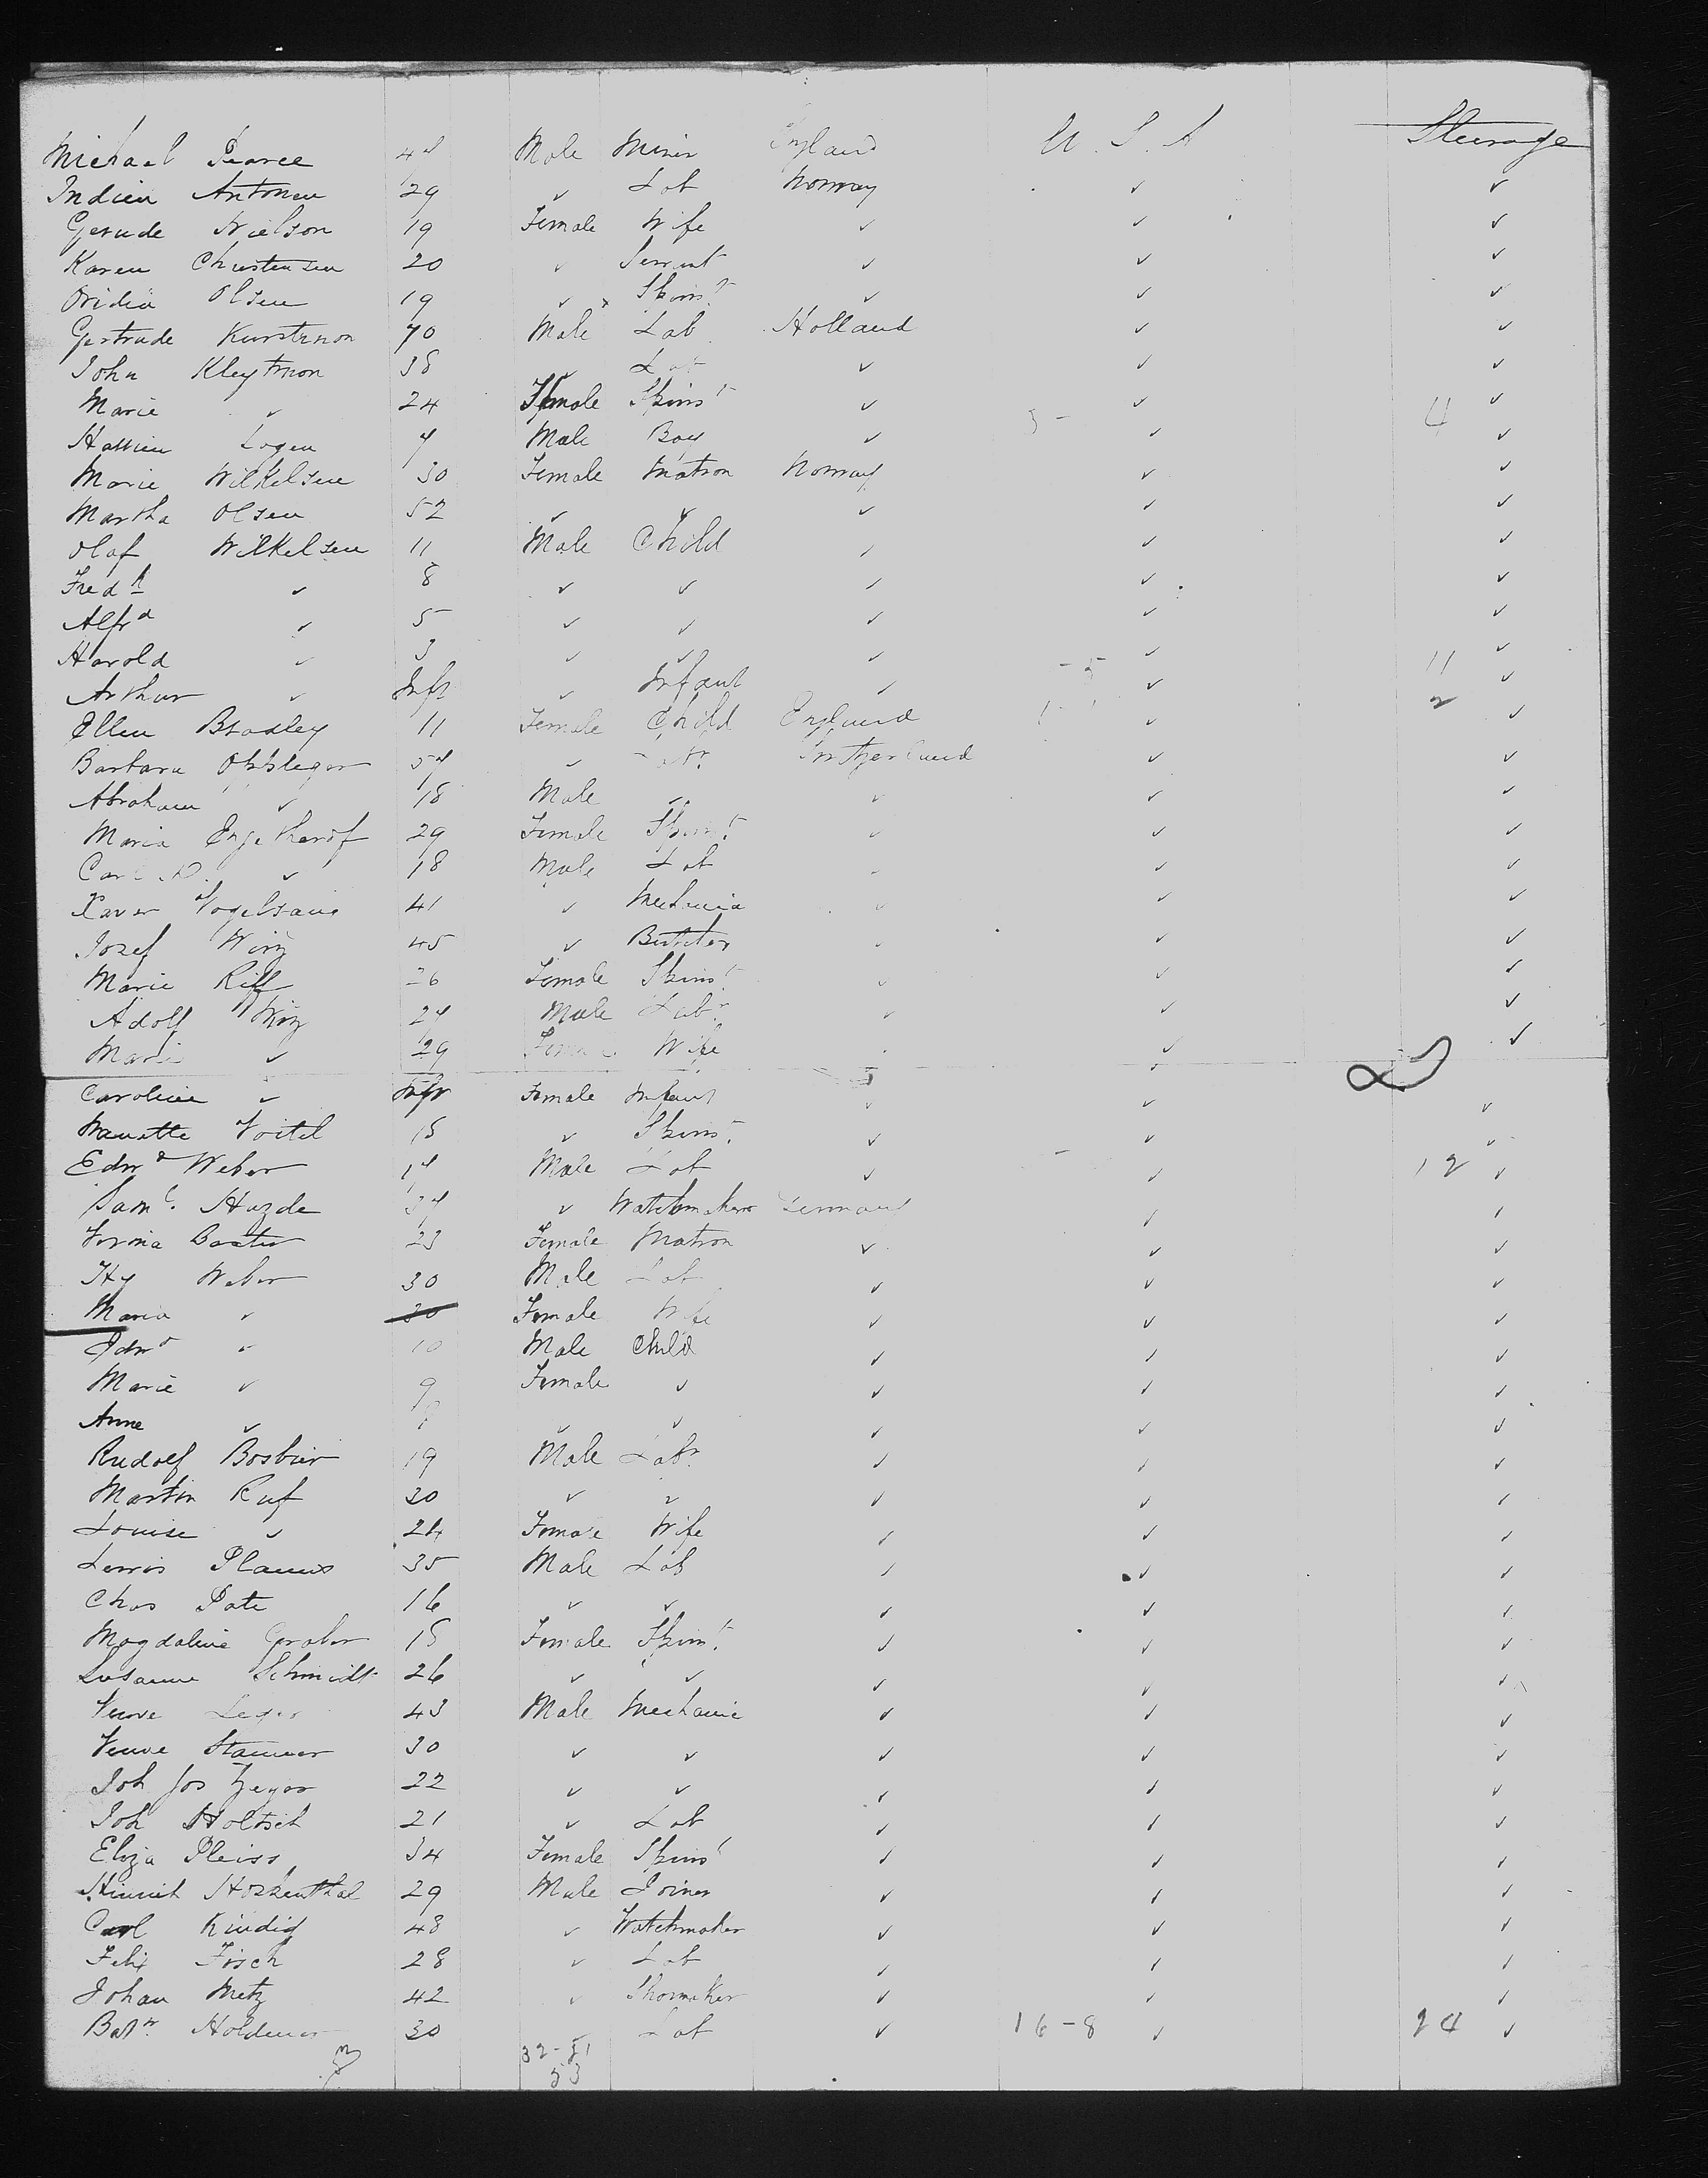 Michael Pearce 44 Male Miner England U.S.A Steerage
Indien Antonsen 29 ✓ Lab Norway ✓ ✓
Gerude Nielson 19 Female Wife ✓ ✓ ✓
Karen Christensen 20 ✓ Servant ✓ ✓ ✓
Oridia Olsen 19 ✓ Spinst ✓ ✓ ✓
Gertrude 70 Male Lab Holland ✓ ✓
John Kleytmon 38 ✓ Lab ✓ ✓ ✓
Marie ✓ 24 Female Spinst ✓ ✓ 4 ✓
Logen 7 Male Boy ✓ ✓ ✓
Marie Wilkelsen 30 Female Matron Norway ✓ ✓
Martha Olsen 52 ✓ ✓ ✓ ✓ ✓
Olaf Wilkelsen 11 Male Child ✓ ✓ ✓
Fredk ✓ 8 ✓ ✓ ✓ ✓ ✓
Alfrd ✓ 5 ✓ ✓ ✓ ✓ ✓
Harold ✓ 3 ✓ ✓ ✓ ✓ ✓
Arthur ✓ Inft ✓ Infant ✓ -5 ✓ 11 ✓
Ellen Bradley 11 Female Child England ✓ 2 ✓
Barbara 54 ✓ Switzerland ✓ ✓
Abraham ✓ 18 Male ✓ ✓ ✓ ✓
Maria 29 Female Spinst ✓ ✓ ✓
Carl ✓ 18 Male Lab ✓ ✓
Xaver Vogelsang 41 ✓ Mechanic ✓ ✓ ✓
Josef Wirz 45 ✓ Butcher ✓ ✓
Marie Riff 26 Female Spinst ✓ ✓ ✓
Adolf Wirz 24 Male Labr ✓ ✓ ✓
Marie ✓ 29 Female Wife ✓ ✓
Caroline ✓ Infr Female Infant ✓ ✓ ✓
Nanette Voitel 18 ✓ Spinst ✓ ✓ ✓
Edwd Weber 14 Male Lab ✓ ✓ 12 ✓
Saml. Hazde 34 ✓ Watchmaker Germany ✓ ✓
23 Female Matron ✓ ✓ ✓
Hy Weber 30 Male Lab ✓ ✓ ✓
Maria ✓ 30 Female Wife ✓ ✓ ✓
Edwd ✓ 10 Male Child ✓ ✓ ✓
Marie ✓ 9 Female ✓ ✓ ✓ ✓
Anne ✓ ✓ ✓ ✓ ✓ ✓
Rudolf Bosbier 19 Male Labr ✓ ✓ ✓
Martin Ruf 30 ✓ ✓ ✓ ✓ ✓
Louise ✓ 24 Female Wife ✓ ✓ ✓
Lewis 35 Male Lab ✓ ✓ ✓
Chas Pate 16 ✓ ✓ ✓ ✓ ✓
Magdaline Graber 18 Female Spinst ✓ ✓ ✓
Susanne Schmidt 26 ✓ ✓ ✓ ✓ ✓
Leger 43 Male Mechanic ✓ ✓ ✓
30 ✓ ✓ ✓ ✓ ✓
Joh Jos 22 ✓ ✓ ✓ ✓ ✓
Joh Holtsch 21 ✓ Lab ✓ ✓ ✓
Eliza Pleiss 34 Female Spinst ✓ ✓ ✓
Hinrich Hoskenthal 29 Male Joiner ✓ ✓ ✓
Carl Kindig 48 ✓ Watchmaker ✓ ✓ ✓
Felix Fisch 28 ✓ Lab ✓ ✓ ✓
Johan Metz 42 ✓ Shomaker ✓ ✓ ✓
Holdener 30 ✓ Lab ✓ 16-8 ✓ 24 ✓
53